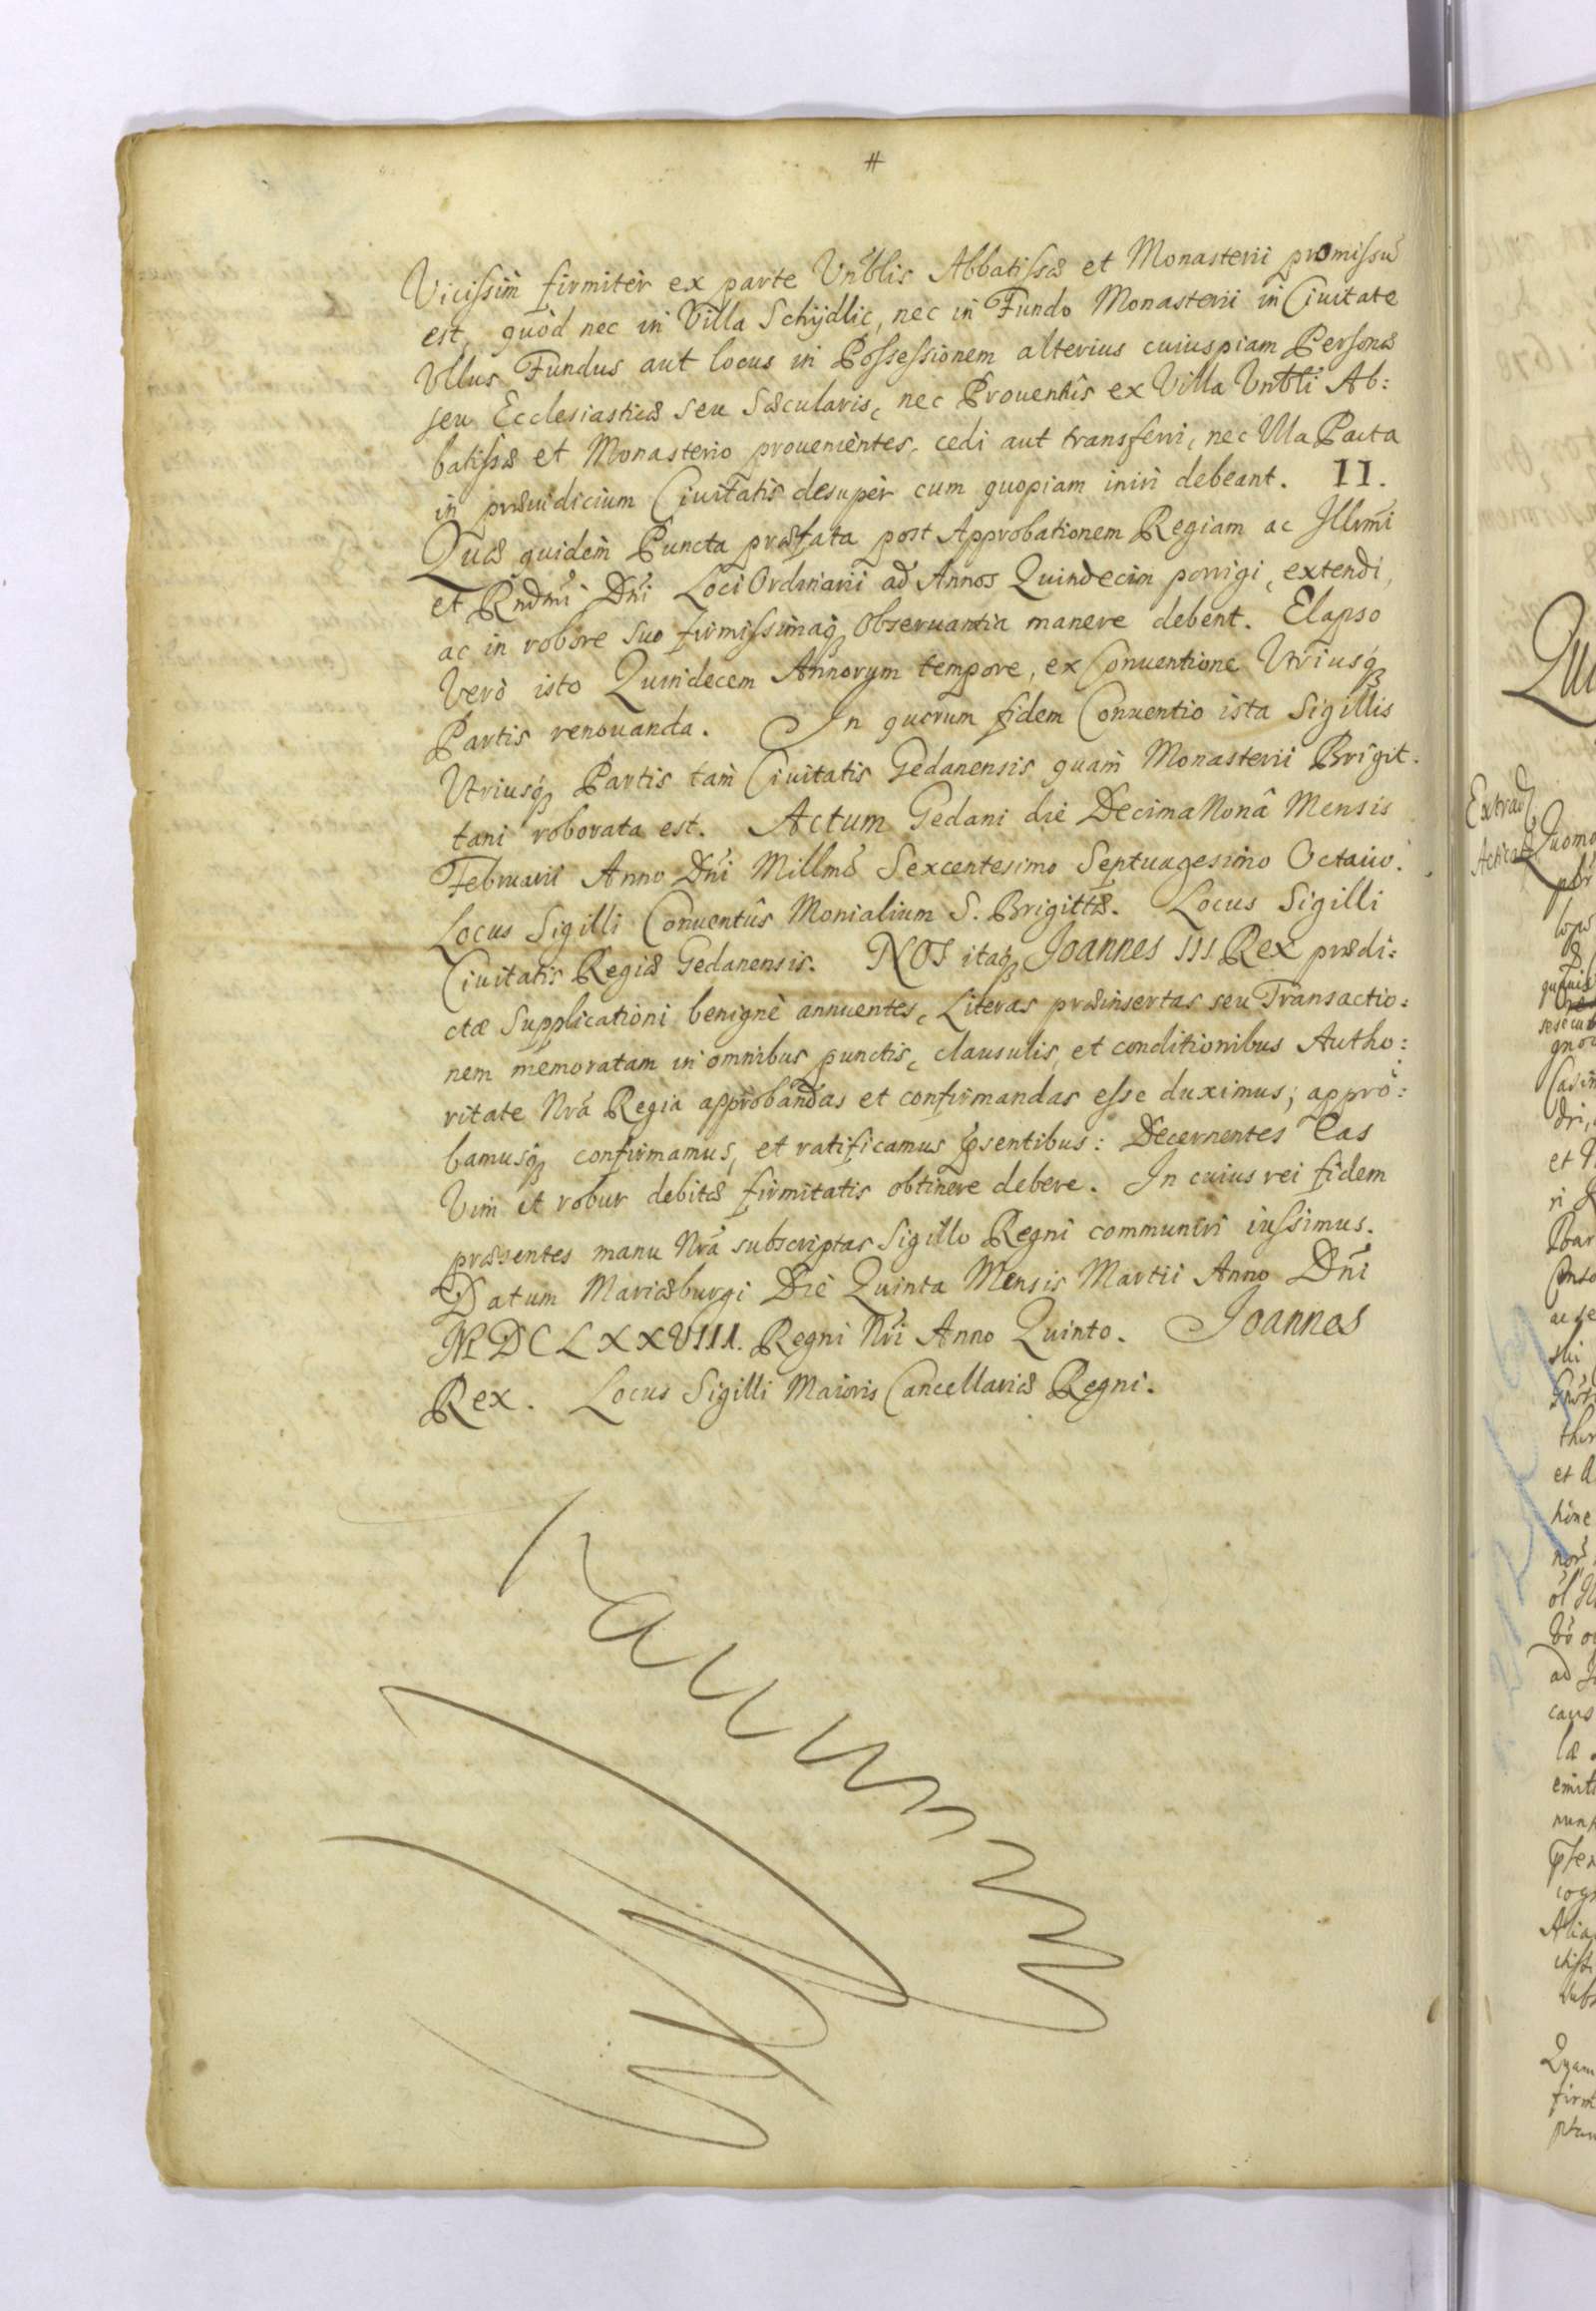 #
Vicissim firmiter ex parte Vnblis Abbatissæ et Monasterii promissū
est, quòd nec in Villa Schÿdlic, nec in Fundo Monasterii in Ciuitate
Vllus Fundus aut locus in Possessionem alterius cuiuspiam Personæ
seu Ecclesiasticæ seu Sæcularis, nec Prouentûs ex Villa Vnbli Ab:
batissæ et Monasterio prouenientes, cedi aut transferri, nec Vlla Pacta
in præiudicium Ciuitatis desuper cum quopiam iniri debeant. II.
Quæ quidem Puncta præfata post Approbationem Regiam ac Illrmi
et Rndmi Dni Loci Ordinarii ad Annos Quindecim porrigi, extendi,
ac in robore suo firmissimaq; Obseruantia manere debent. Elapso
Verò isto Quindecem Annorum tempore, ex Conuentione Vtriusq;
Partis renouanda. In quorum fidem Conuentio ista Sigillis
Vtriusq; Partis tam Ciuitatis Gedanensis quam Monasterii Brigit:
tani roborata est. Actum Gedani die Decima Nonâ Mensis
Februarii Anno Dni Millmo Sexcentesimo Septuagesimo Octauo.
Locus Sigilli Conuentûs Monialium S. Brigittæ. Locus Sigilli
Ciuitatis Regiæ Gedanensis. NOS itaq; Joannes III Rex prædi:
ctæ Supplicationi benignè annuentes, Literas præinsertas seu Transactio:
nem memoratam in omnibus punctis, clausulis, et conditionibus Autho:
ritate Nrá Regia approbandas et confirmandas esse duximus; appro:
bamusq; confirmamus, et ratificamus psentibus: Decernentes eas
Vim et robur debitæ firmitatis obtinere debere. In cuius rei fidem
præsentes manu Nrá subscriptas Sigillo Regni communiri iussimus.
Datum Mariæburgi Die Quinta Mensis Martii Anno Dni
MDCLXXVIII. Regni Nri Anno Quinto. Joannes
Rex. Locus Sigilli Maioris Cancellariæ Regni.